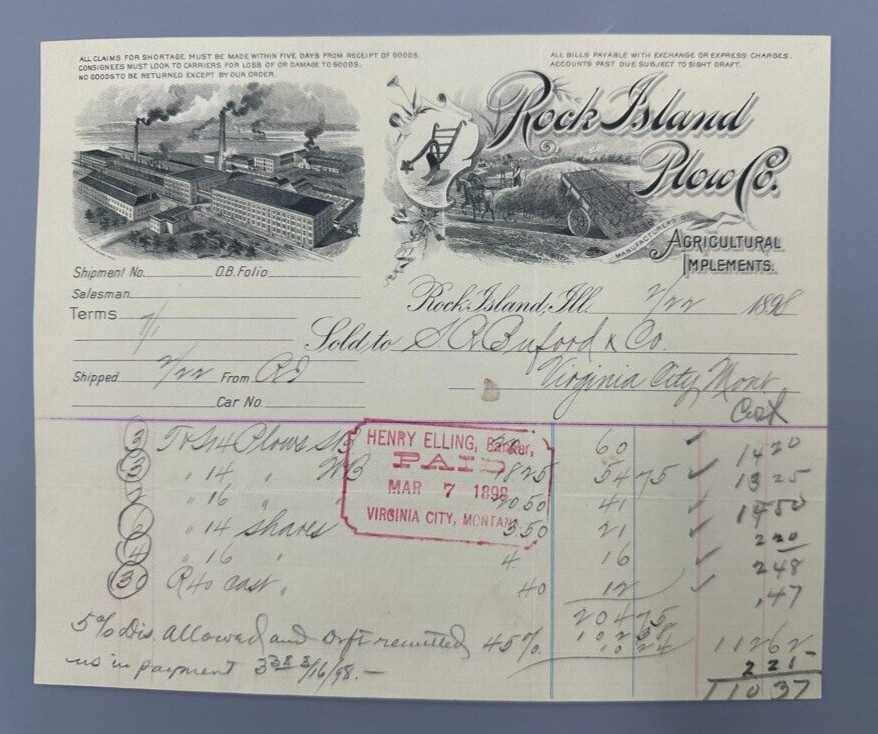 ALL CLAIMS FOR SHORTAGE MUST BE MADE WITHIN FIVE DAYS FROM RECEIPT OF GOODS.
CONSIGNEES MUST LOOK TO CARRIERS FOR LOSS OF OR DAMAGE TO GOODS.
NO GOODS TO BE RETURNED EXCEPT BY OUR ORDER.
ALL BILLS PAYABLE WITH EXCHANGE OR EXPRESS CHARGES.
ACCOUNTS PAST DUE SUBJECT TO SIGHT DRAFT.
Rock Island
Plow Co.
MANUFACTURERS OF
AGRICULTURAL
IMPLEMENTS.
Shipment No. O.B. Folio
Salesman
Terms 7/1
Rock Island, Ill. 2/22 1898
Sold to S.R. Buford & Co.
Virginia City, Mont
Shipped 2/22 From RI
Car No.
Cost
3 Plows 60 14 20
3 " 14 " 18 25 54 75 13 25
" 16 " 20.50 41 14 50
6 " 14 shares 3.50 21 2 20
4 " 16 " 4 16 2 48
30 R40 cast " 40 12 .47
HENRY ELLING, Banker,
PAID
MAR 7 1898
VIRGINIA CITY, MONTANA.
204 75
5% Dis. Allowed and Drft remitted 45%. 112 62
us in payment 3/16/98.- 2 25
110 37